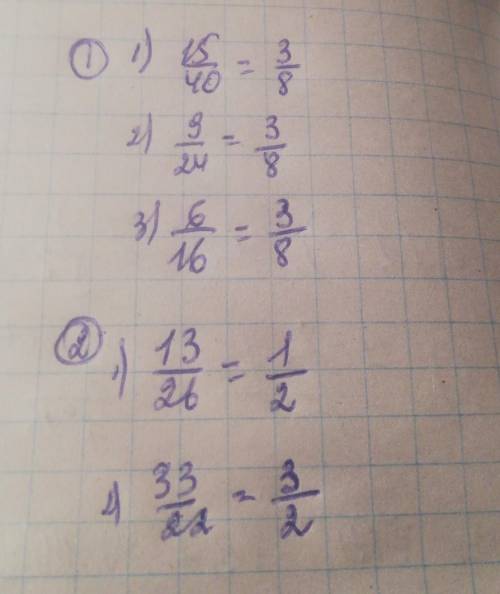 ① 1) 15/40 = 3/8
2) 9/24 = 3/8
3) 6/16 = 3/8
② 1) 13/26 = 1/2
33/22 = 3/2